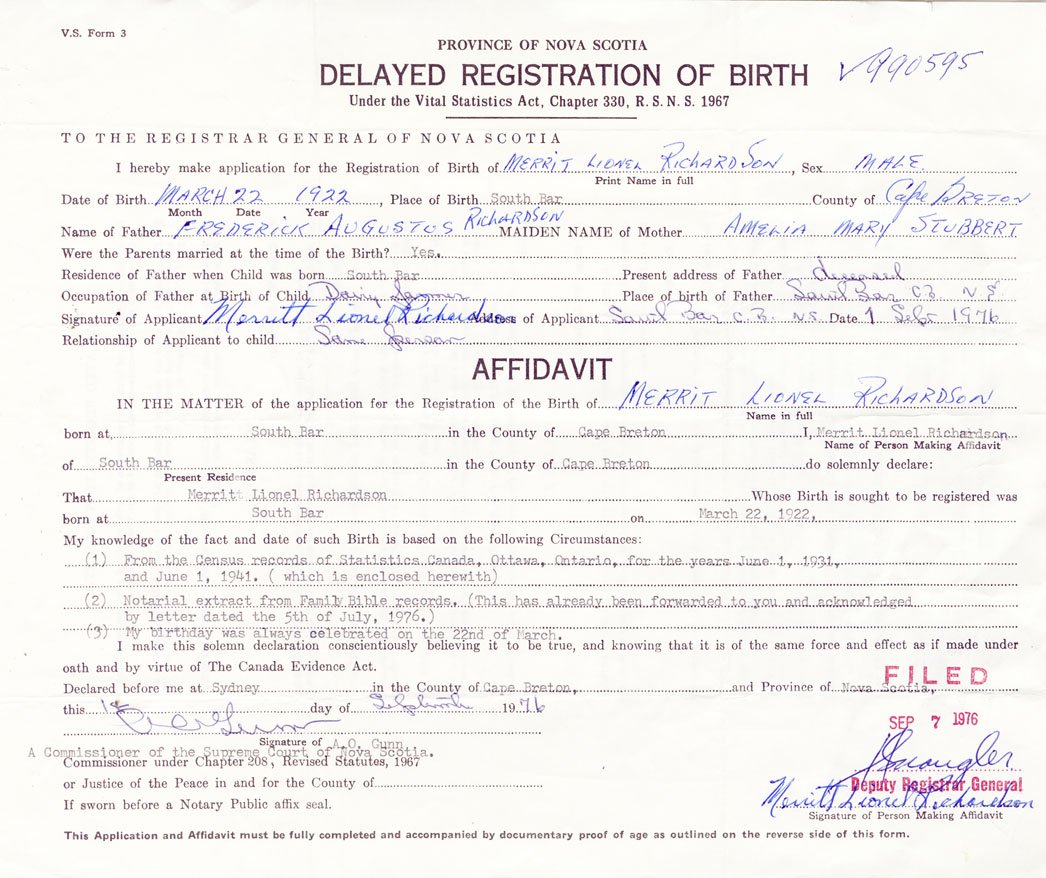 V.S. Form 3
PROVINCE OF NOVA SCOTIA
DELAYED REGISTRATION OF BIRTH
990595
Under the Vital Statistics Act, Chapter 330, R. S. N. S. 1967
TO THE REGISTRAR GENERAL OF NOVA SCOTIA
I hereby make application for the Registration of Birth of MERRIT LIONEL RICHARDSON, Sex MALE
Print Name in full
Date of Birth MARCH 22 1922, Place of Birth South Bar County of Cape BRETON
Month Date Year
Name of Father FREDERICK AUGUSTUS RICHARDSON MAIDEN NAME of Mother AMELIA MARY STUBBERT
Were the Parents married at the time of the Birth? Yes.
Residence of Father when Child was born South Bar Present address of Father deceased
Occupation of Father at Birth of Child Dairy farmer Place of birth of Father South Bar C.B. N.S.
Signature of Applicant Merritt Lionel Richardson Address of Applicant South Bar C.B. N.S. Date 1 Sept 1976
Relationship of Applicant to child Same person
AFFIDAVIT
IN THE MATTER of the application for the Registration of the Birth of MERRIT LIONEL RICHARDSON
Name in full
born at, South Bar in the County of Cape Breton I, Merrit Lionel Richardson
Name of Person Making Affidavit
of South Bar in the County of Cape Breton do solemnly declare:
Present Residence
That Merritt Lionel Richardson Whose Birth is sought to be registered was
born at South Bar on March 22, 1922,
My knowledge of the fact and date of such Birth is based on the following Circumstances:
(1) From the Census records of Statistics Canada, Ottawa, Ontario, for the years June 1, 1931,
and June 1, 1941. ( which is enclosed herewith)
(2) Notarial extract from Family Bible records. (This has already been forwarded to you and acknowledged
by letter dated the 5th of July, 1976.)
(3) My birthday was always celebrated on the 22nd of March.
I make this solemn declaration conscientiously believing it to be true, and knowing that it is of the same force and effect as if made under
oath and by virtue of The Canada Evidence Act.
FILED
Declared before me at Sydney in the County of Cape Breton, and Province of Nova Scotia,
this 1st day of September 1976
SEP 7 1976
Signature of A.O. Gunn
A Commissioner of the Supreme Court of Nova Scotia.
Commissioner under Chapter 208, Revised Statutes, 1967
or Justice of the Peace in and for the County of
Deputy Registrar General
Merritt Lionel Richardson
If sworn before a Notary Public affix seal.
Signature of Person Making Affidavit
This Application and Affidavit must be fully completed and accompanied by documentary proof of age as outlined on the reverse side of this form.